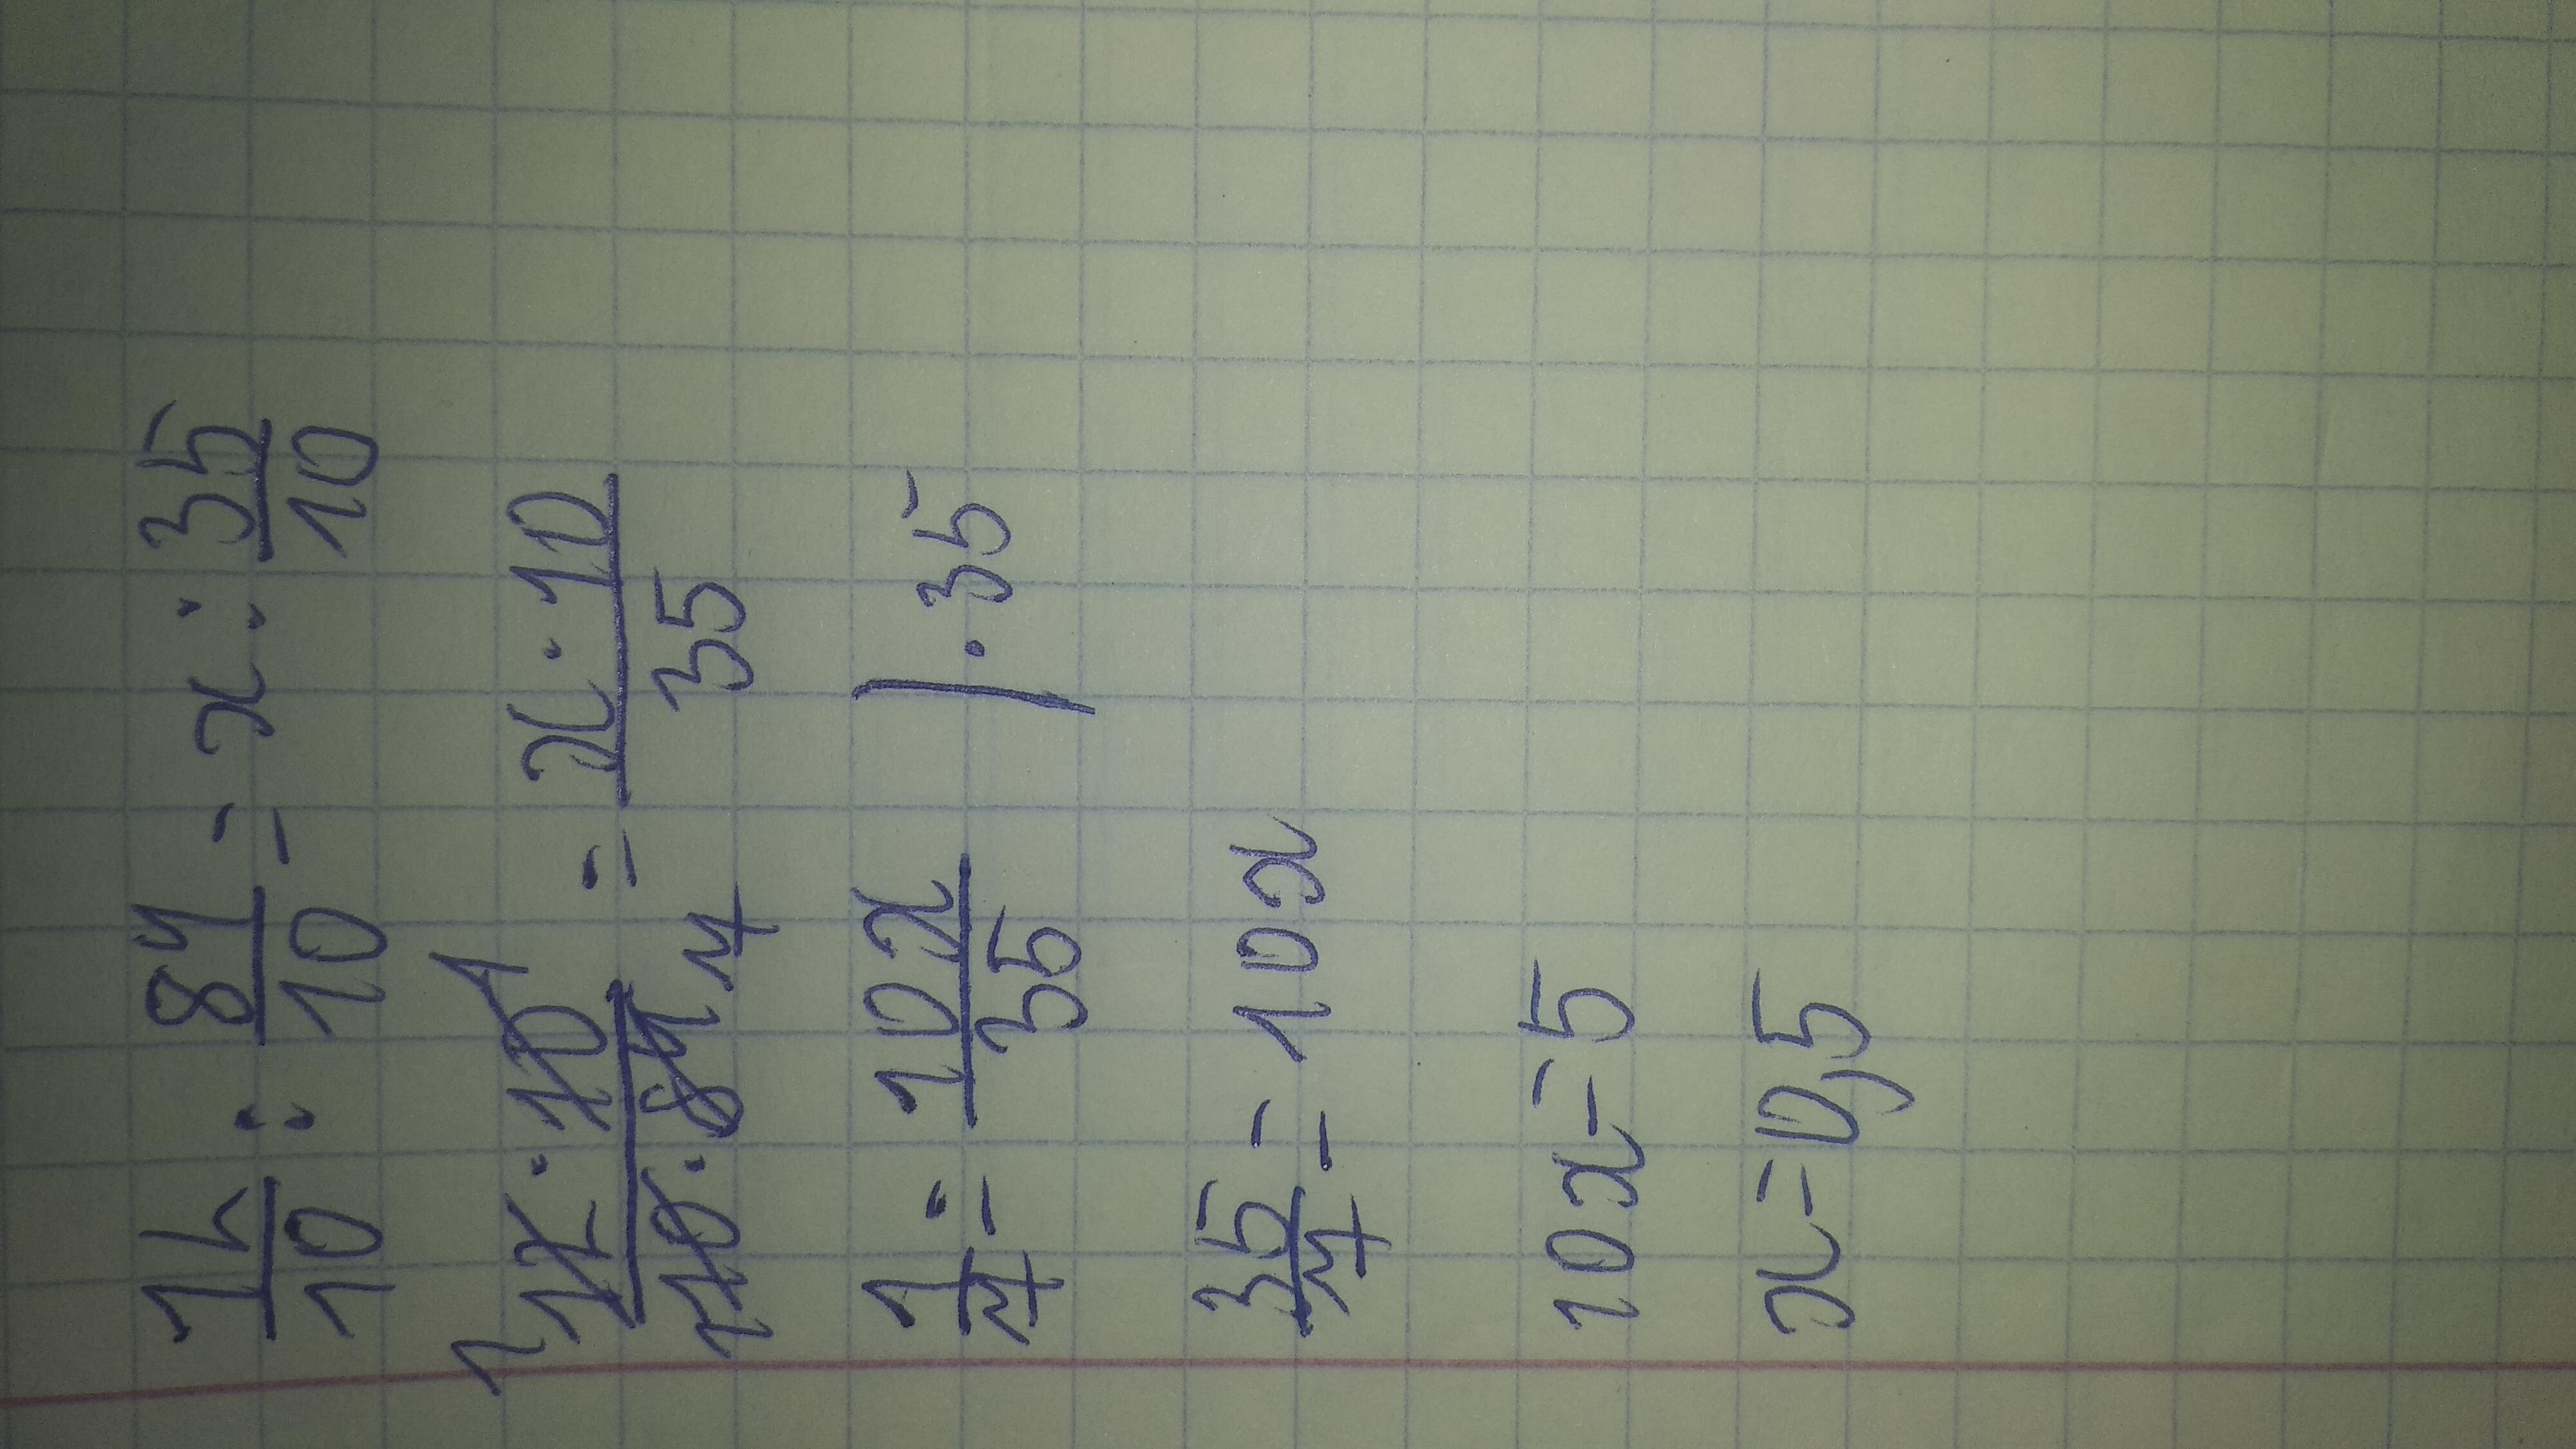 12/10 : 84/10 = x : 35/10
1 12 · 10 1 / 1 10 · 84 7 = x · 10 / 35
1/7 = 10x/35 | · 35
35/7 = 10x
10x = 5
x = 0,5